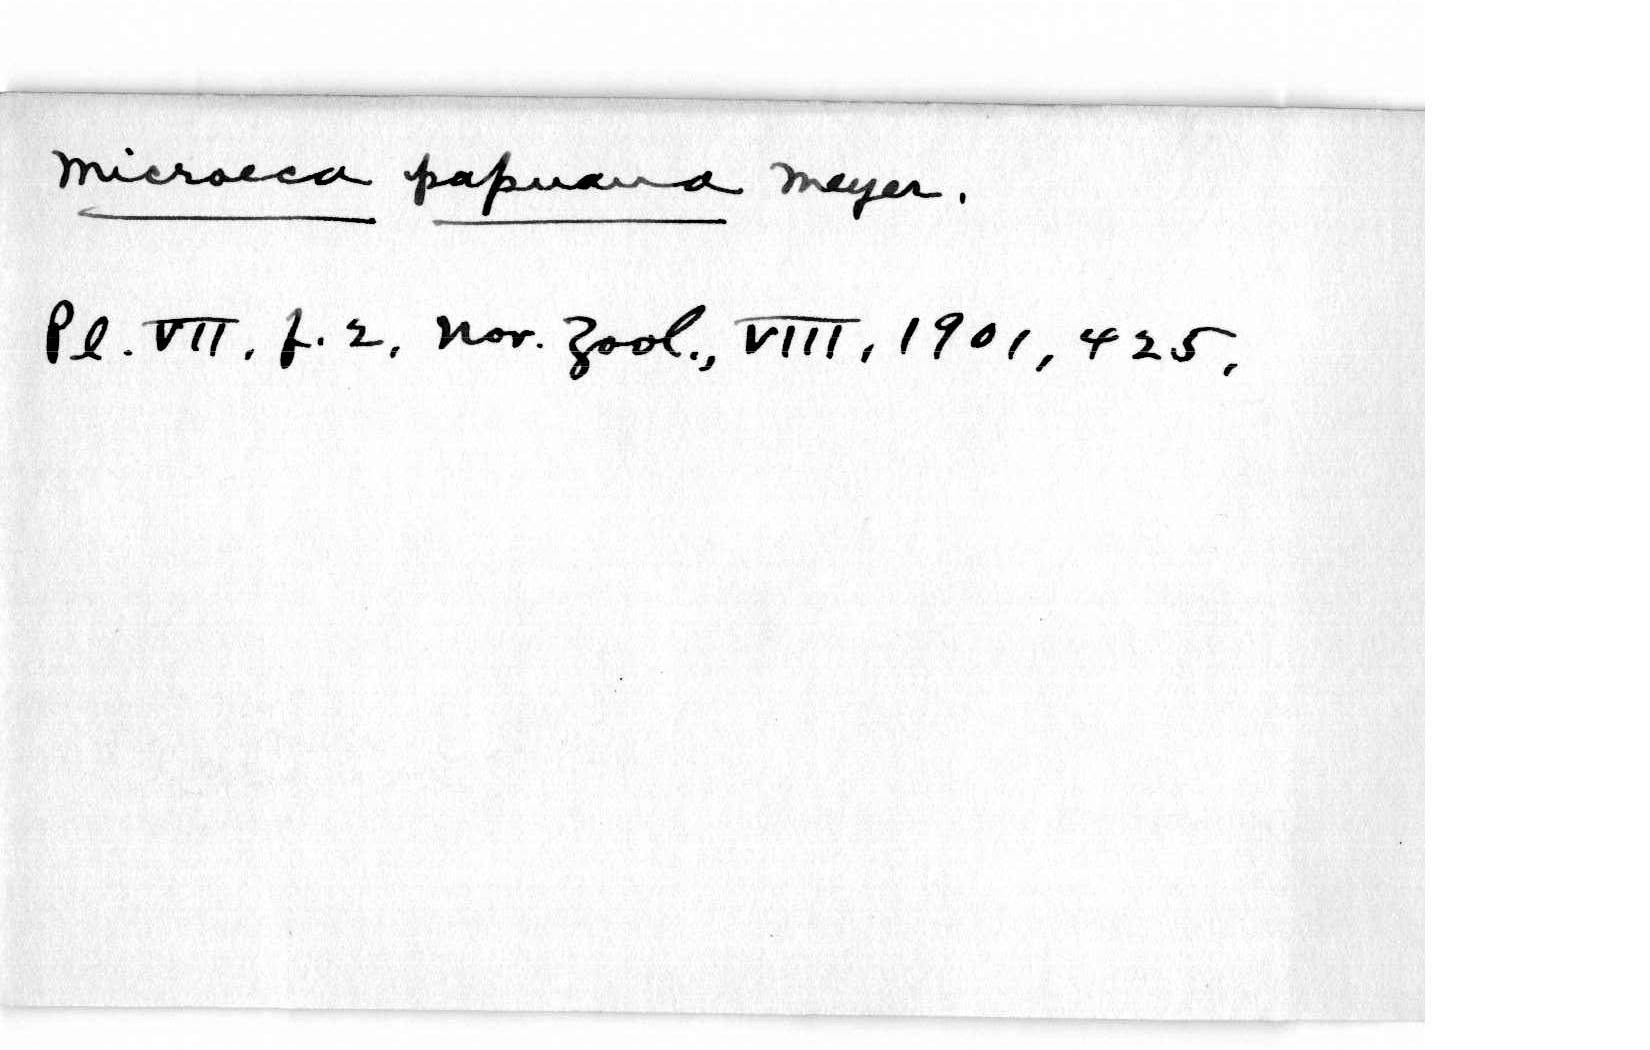 Microeca papuana Meyer.
Pl. VII, f. 2, Nov. Zool., VIII, 1901, 425,